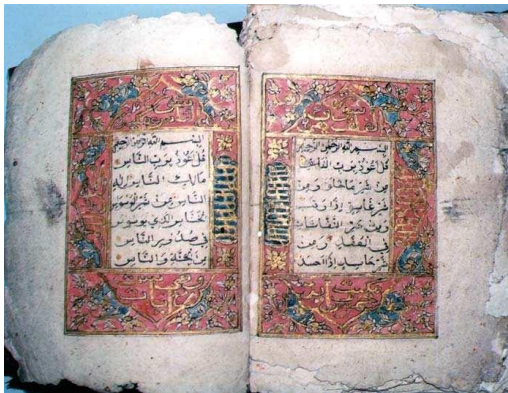 بسم الله الرحمن الرحيم
قل اعوذ برب الفلق
من شر ما خلق ومن
شر غاسق اذا وقب
ومن شر النفاثات
في العقد ومن
شر حاسد اذا حسد
بسم الله الرحمن الرحيم
قل اعوذ برب الناس
ملك الناس اله
الناس من شر الوسواس
الخناس الذي يوسوس
في صدور الناس
من الجنة والناس